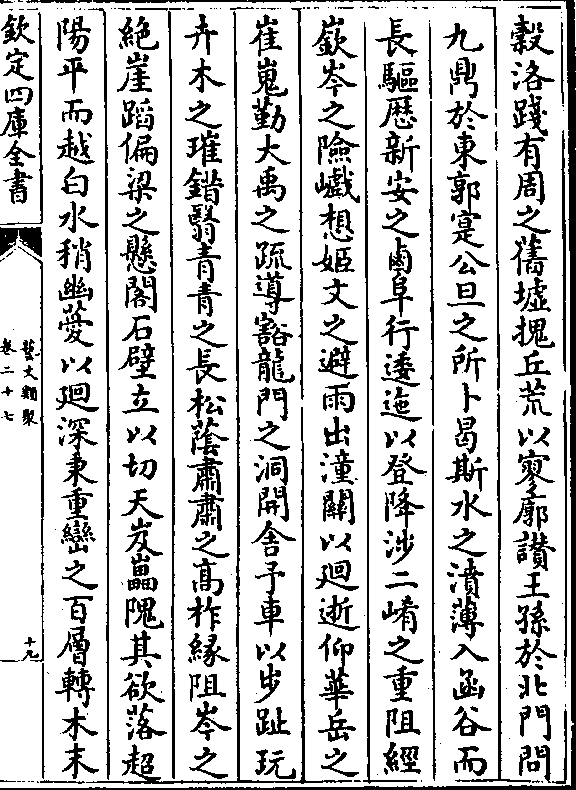 穀洛踐有周之舊墟㨪丘荒以寥廓讃王孫於北門問
九鼎於東郭寔公旦之所卜曷斯水之濆薄入函谷而
長驅歴新安之鹵阜行逶迤以登降涉二崤之重阻經
嶔岑之險巇想姬文之避雨出潼關以迴逝仰華岳之
崔嵬勤大禹之疏導豁龍門之洞開舍予車以步趾玩
卉木之璀錯翳青青之長松蔭肅肅之高柞緣阻岑之
絶崖蹈偏梁之懸閣石壁立以切天岌礨隗其欲落超
陽平而越白水稍幽薆以迴深秉重巒之百層轉木末
欽定四庫全書
藝文類聚
卷二十七
十九